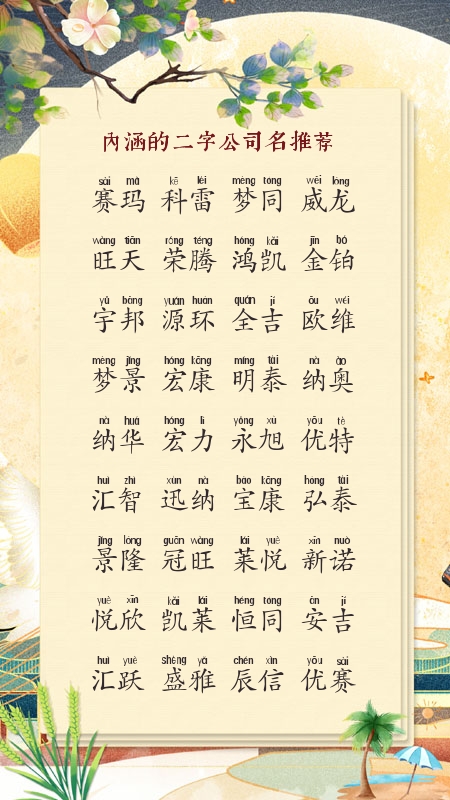 内涵的二字公司名推荐
sài mǎ kē léi mèng tóng wēi lóng
赛玛 科雷 梦同 威龙
wàng tiān róng téng hóng kǎi jīn bó
旺天 荣腾 鸿凯 金铂
yǔ bāng yuán huán quán jí ōu wéi
宇邦 源环 全吉 欧维
mèng jǐng hóng kāng míng tài nà ào
梦景 宏康 明泰 纳奥
nà huá hóng lì yǒng xù yōu tè
纳华 宏力 永旭 优特
huì zhì xùn nà bǎo kāng hóng tài
汇智 迅纳 宝康 弘泰
jǐng lóng guān wàng lái yuè xīn nuò
景隆 冠旺 莱悦 新诺
yuè xīn kǎi lái héng tóng ān jí
悦欣 凯莱 恒同 安吉
huì yuè shèng yǎ chén xìn yōu sài
汇跃 盛雅 辰信 优赛